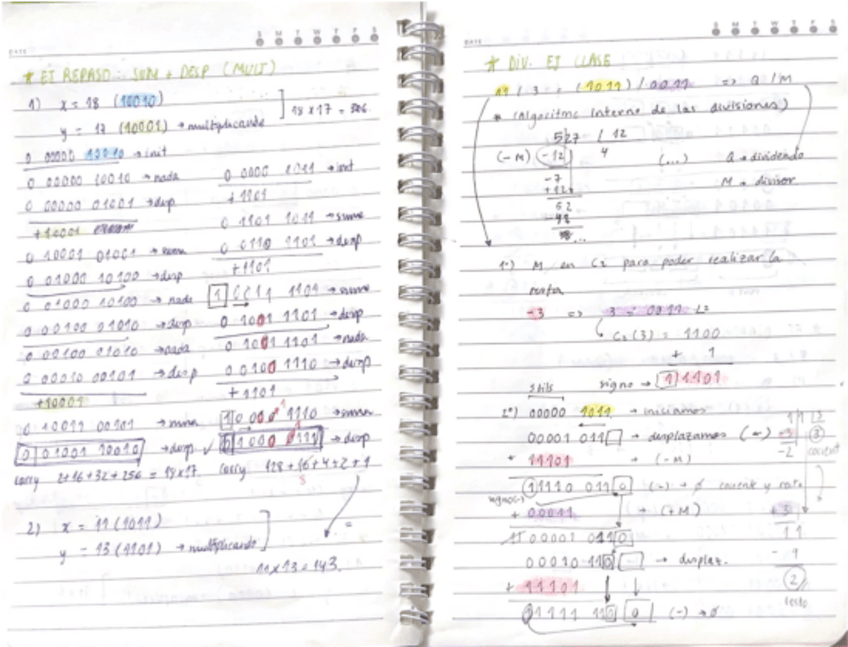 DATE
S M T W T F S
* EJ REPASO: SUM + DESP (MULT)
1) x = 18 (10010)
y = 17 (10001) → multiplicando
18 x 17 = 306
0 00000 10010 → init
0 00000 10010 → nada
0 00000 01001 → desp
+10001
0 10001 01001 → suma
0 01000 10100 → desp
0 01000 10100 → nada
0 00100 01010 → desp
0 00100 01010 → nada
0 00010 00101 → desp
+10001
0 10011 00101 → suma
0 01001 10010 → desp ✓
carry 2+16+32+256 = 18x17
0 0000 1011 → init
+1101
0 1101 1011 → suma
0 0110 1101 → desp
+1101
1 0011 1101 → suma
0 1001 1101 → desp
0 1001 1101 → nada
0 0100 1110 → desp
+1101
→ suma
→ desp
carry 128+16+4+2+1
8
2) x = 11 (1011)
y = 13 (1101) → multiplicando
11x13 = 143.
DATE
S M T W T F S
* DIV. EJ CLASE
11 / 3 ; (1011) / 0011 => Q / M
* (Algoritmo interno de las divisiones)
527 / 12
(-M) (-12) 4 (...) Q → dividendo
-7 M → divisor
+12
52
-48
1º) M en C2 para poder realizar la
resta
-3 => 3 = 0011 L2
C2(3) = 1100
+ 1
signo → 1 1101
5 bits
2º) 00000 1011 → iniciamos
00001 011 → desplazamos (←)
+ 11101 → (-M)
11110 011 0 (-) → 0 cociente y resto
signo(-)
+ 00011 → (+M)
00001 011 0
00010 110 → desplaz.
+ 11101
11111 110 0 (-) → 0
11 L2
-3 3
-2 cocient
+3
11
- 9
2
resto